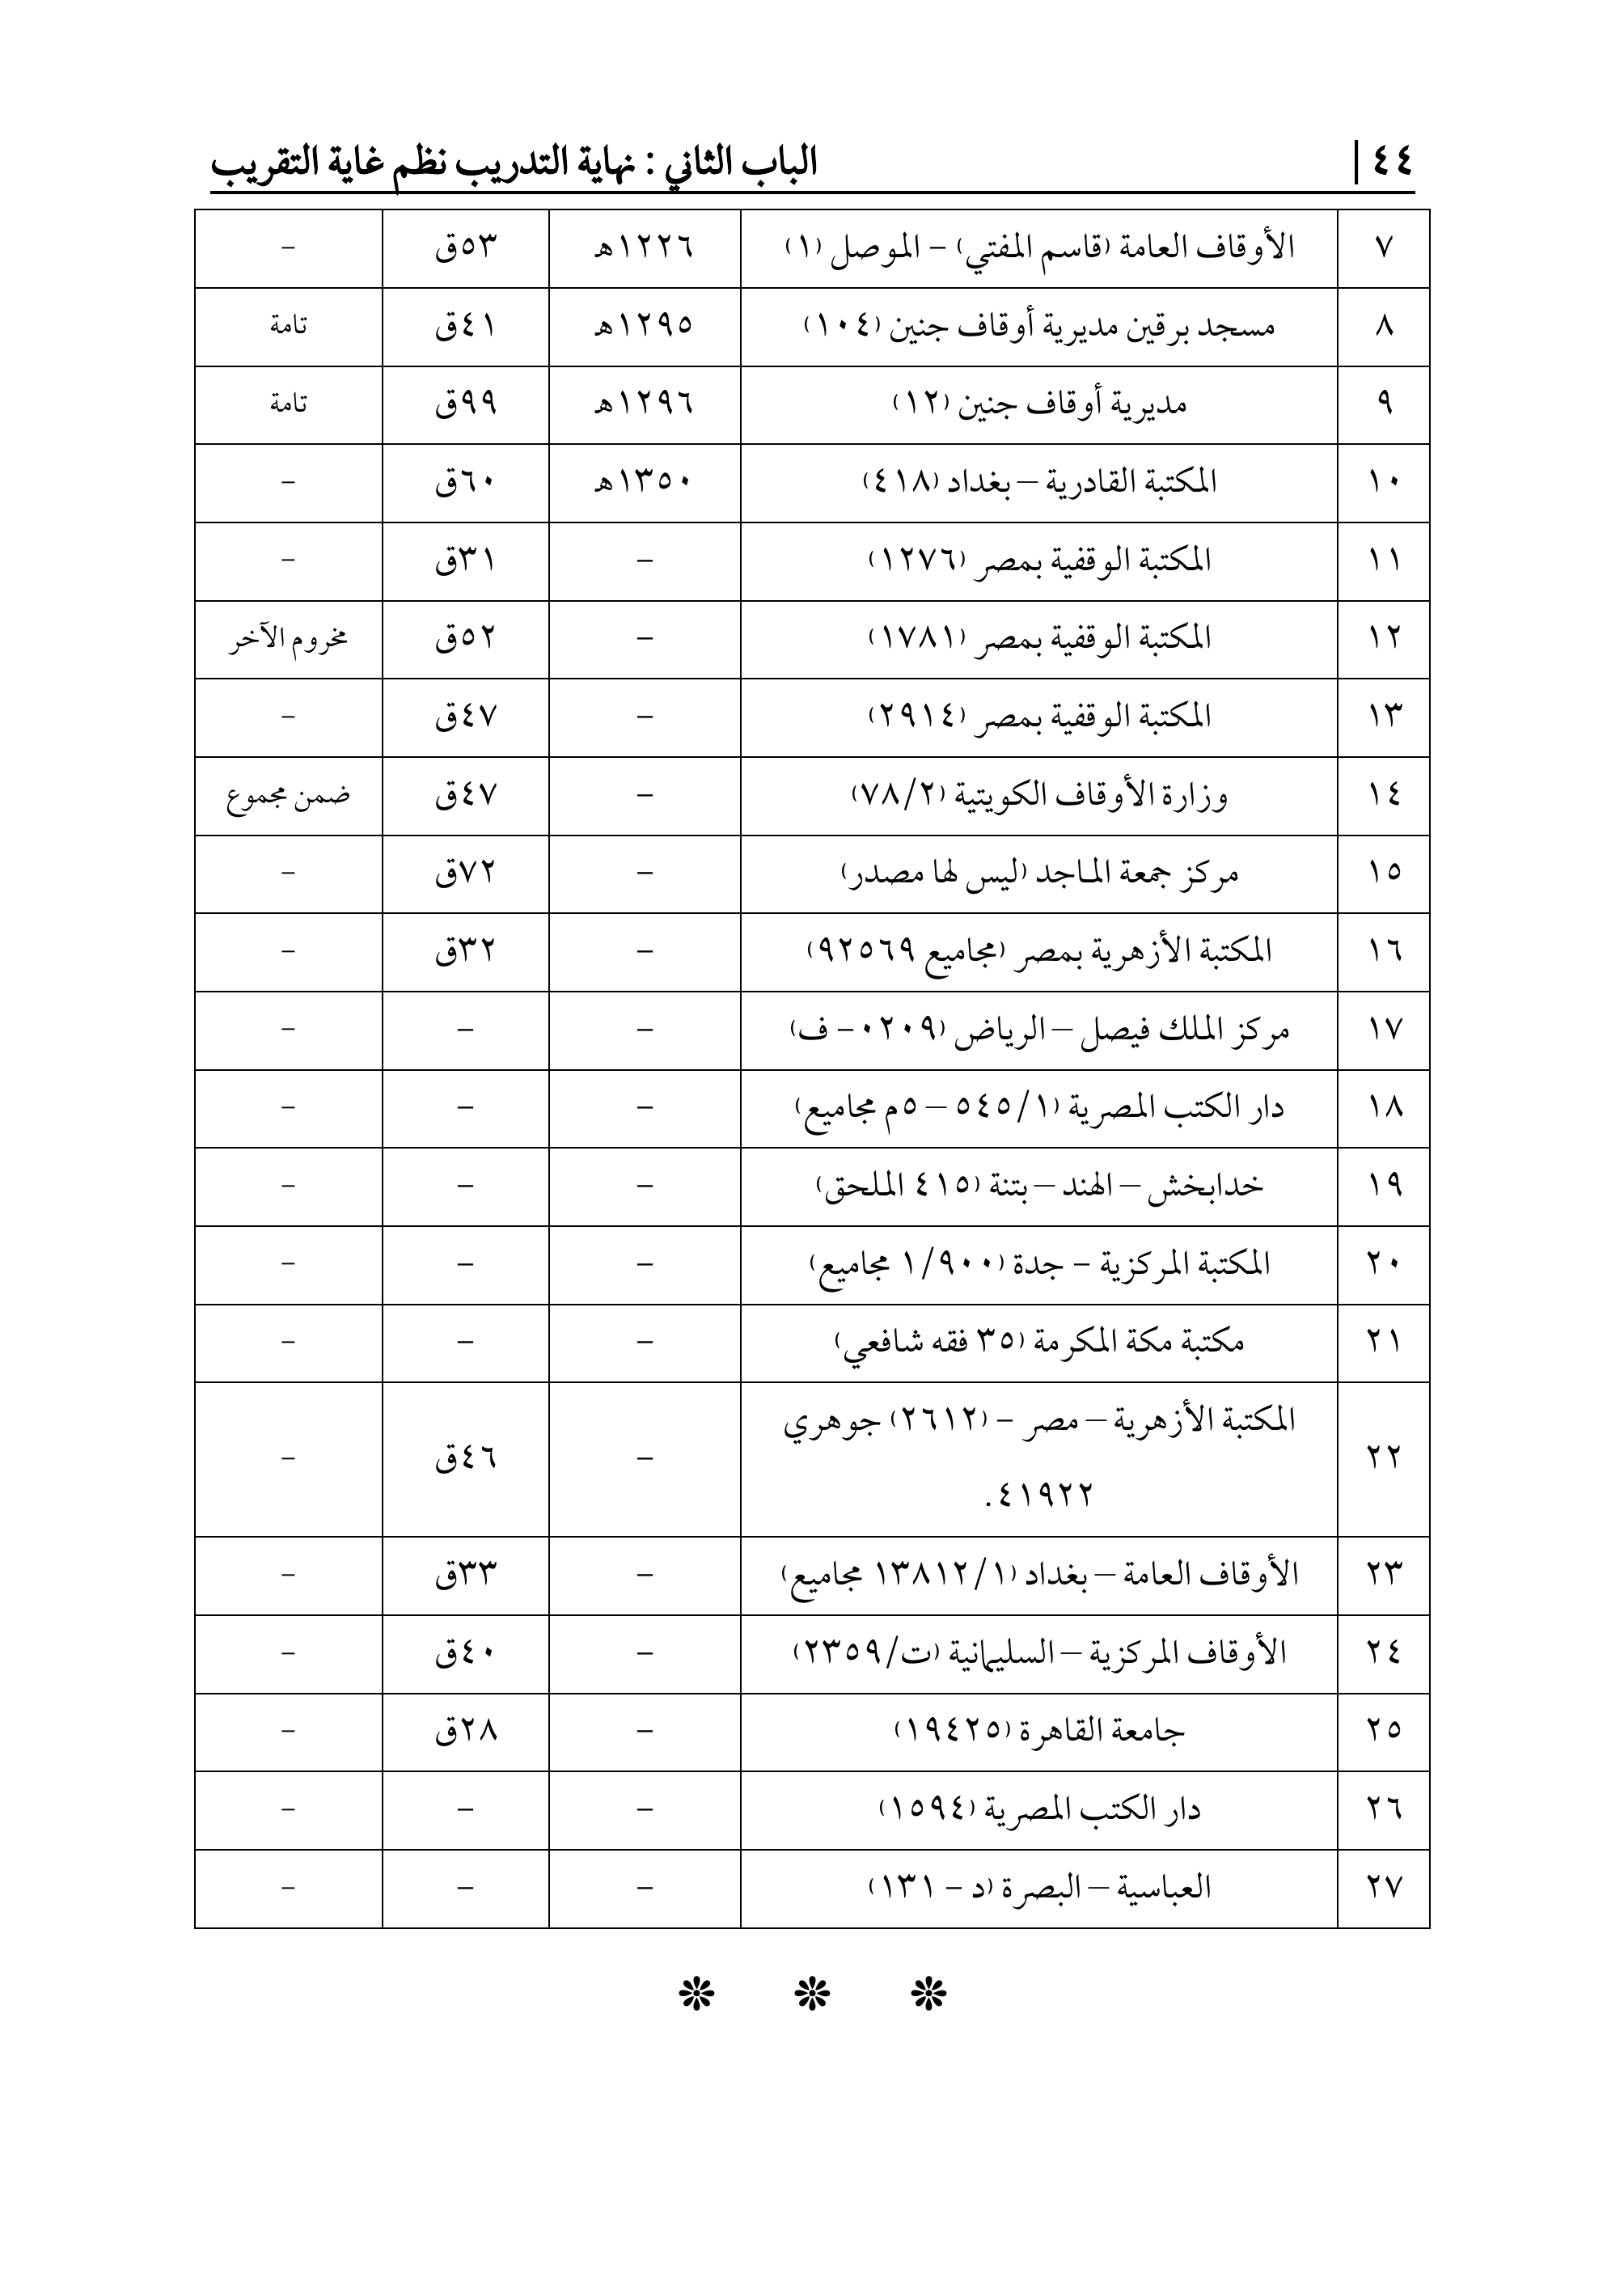 ٤٤ | الباب الثاني : نهاية التدريب نظم غاية التقريب
٧ الأوقاف العامة (قاسم المفتي) – الموصل (١) ١٢٢٦هـ ٥٣ق –
٨ مسجد برقين مديرية أوقاف جنين (١٠٤) ١٢٩٥هـ ٤١ق تامة
٩ مديرية أوقاف جنين (١٢) ١٢٩٦هـ ٩٩ق تامة
١٠ المكتبة القادرية – بغداد (٤١٨) ١٣٥٠هـ ٦٠ق –
١١ المكتبة الوقفية بمصر (١٢٧٦) – ٣١ق –
١٢ المكتبة الوقفية بمصر (١٧٨١) – ٥٢ق مخروم الآخر
١٣ المكتبة الوقفية بمصر (٢٩١٤) – ٤٧ق –
١٤ وزارة الأوقاف الكويتية (٧٨/٢) – ٤٧ق ضمن مجموع
١٥ مركز جمعة الماجد (ليس لها مصدر) – ٧٢ق –
١٦ المكتبة الأزهرية بمصر (مجاميع ٩٢٥٦٩) – ٣٢ق –
١٧ مركز الملك فيصل – الرياض (٠٢٠٩– ف) – – –
١٨ دار الكتب المصرية (٥٤٥/١ – ٥م مجاميع) – – –
١٩ خدابخش – الهند – بتنة (٤١٥ الملحق) – – –
٢٠ المكتبة المركزية – جدة (١/٩٠٠ مجاميع) – – –
٢١ مكتبة مكة المكرمة (٣٥ فقه شافعي) – – –
٢٢ المكتبة الأزهرية – مصر – (٢٦١٢) جوهري
٤١٩٢٢. – ٤٦ق –
٢٣ الأوقاف العامة – بغداد (١٣٨١٢/١ مجاميع) – ٣٣ق –
٢٤ الأوقاف المركزية – السليمانية (ت/٢٣٥٩) – ٤٠ق –
٢٥ جامعة القاهرة (١٩٤٢٥) – ٢٨ق –
٢٦ دار الكتب المصرية (١٥٩٤) – – –
٢٧ العباسية – البصرة (د – ١٣١) – – –
❊ ❊ ❊